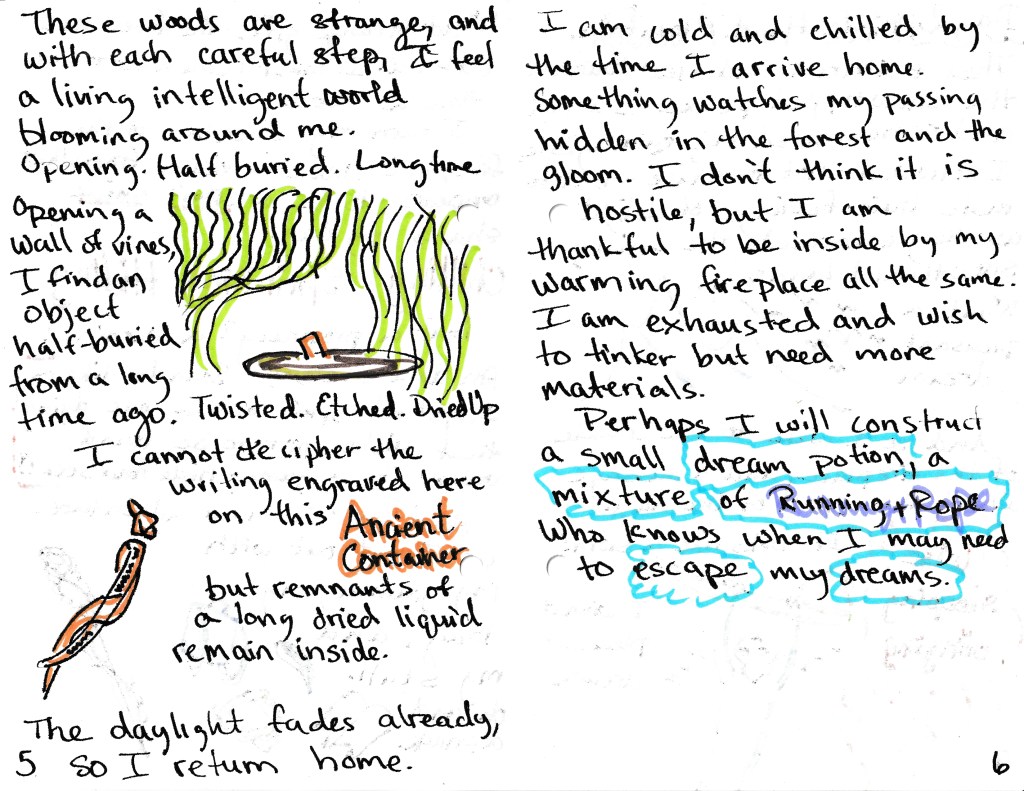 These woods are strange, and
with each careful step, I feel
a living intelligent world
blooming around me.
Opening. Half buried. Longtime
Opening a
wall of vines,
I find an
object
half-buried
from a long
time ago.
Twisted. Etched. Dried Up
I cannot decipher the
writing engraved here
on this Ancient
Container
but remnants of
a long dried liquid
remain inside.
The daylight fades already,
5 so I return home.
I am cold and chilled by
the time I arrive home.
Something watches my passing
hidden in the forest and the
gloom. I don't think it is
hostile, but I am
thankful to be inside by my
warming fireplace all the same.
I am exhausted and wish
to tinker but need more
materials.
Perhaps I will construct
a small dream potion, a
mixture of Running + Rope
Who knows when I may need
to escape my dreams.
6